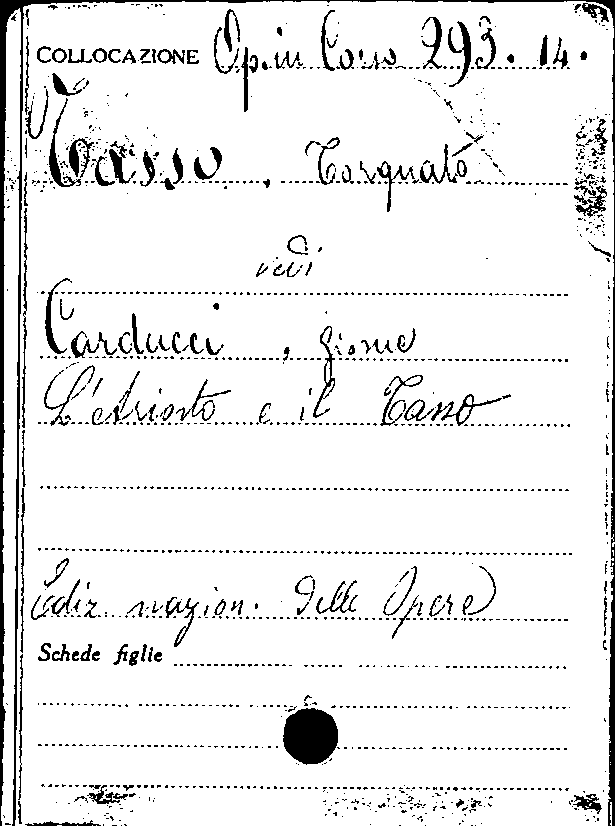 COLLOCAZIONE Op. in Corso 293. 14.
Tasso, Torquato
vedi
Carducci, Giosue
L'Ariosto e il Tasso
Ediz. nazion. delle Opere
Schede figlie